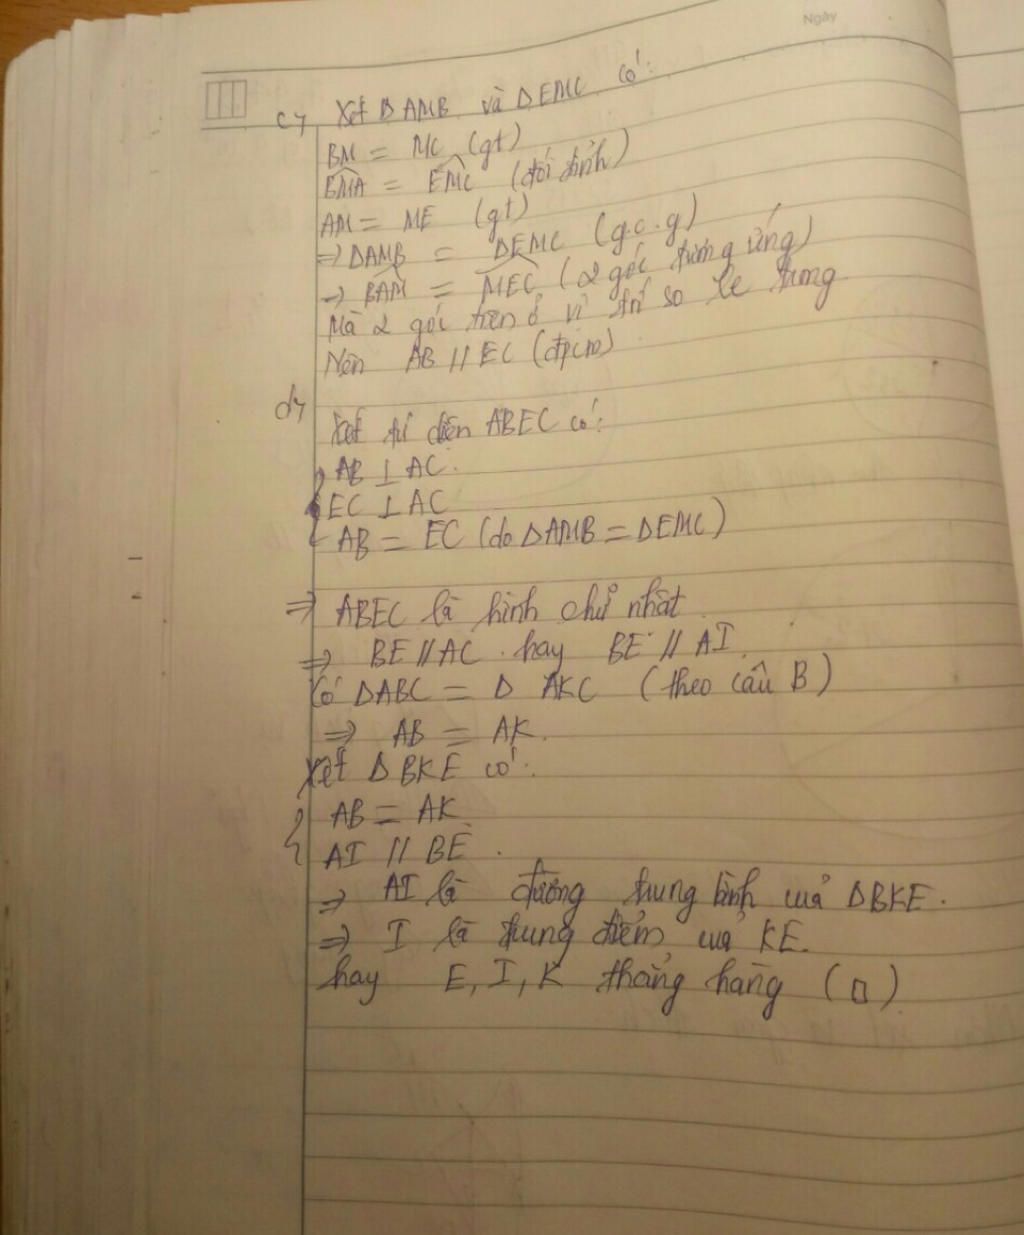 Ngày
c, Xét ΔAMB và ΔEMC có:
BM = MC (gt)
BMA = EMC (đối đỉnh)
AM = ME (gt)
⇒ ΔAMB = ΔEMC (g.c.g)
⇒ BAM = MEC (2 góc tương ứng)
Mà 2 góc trên ở vị trí so le trong
Nên AB // EC (đpcm)
d, Xét tứ diện ABEC có:
AB ⊥ AC.
EC ⊥ AC
AB = EC (do ΔAMB = ΔEMC)
⇒ ABEC là hình chữ nhật.
⇒ BE // AC hay BE // AI.
Có ΔABC = Δ AKC (theo câu B)
⇒ AB = AK.
Xét ΔBKE có:
AB = AK
AI // BE.
⇒ AI là đường trung bình của ΔBKE.
⇒ I là trung điểm của KE.
hay E, I, K thẳng hàng (□)